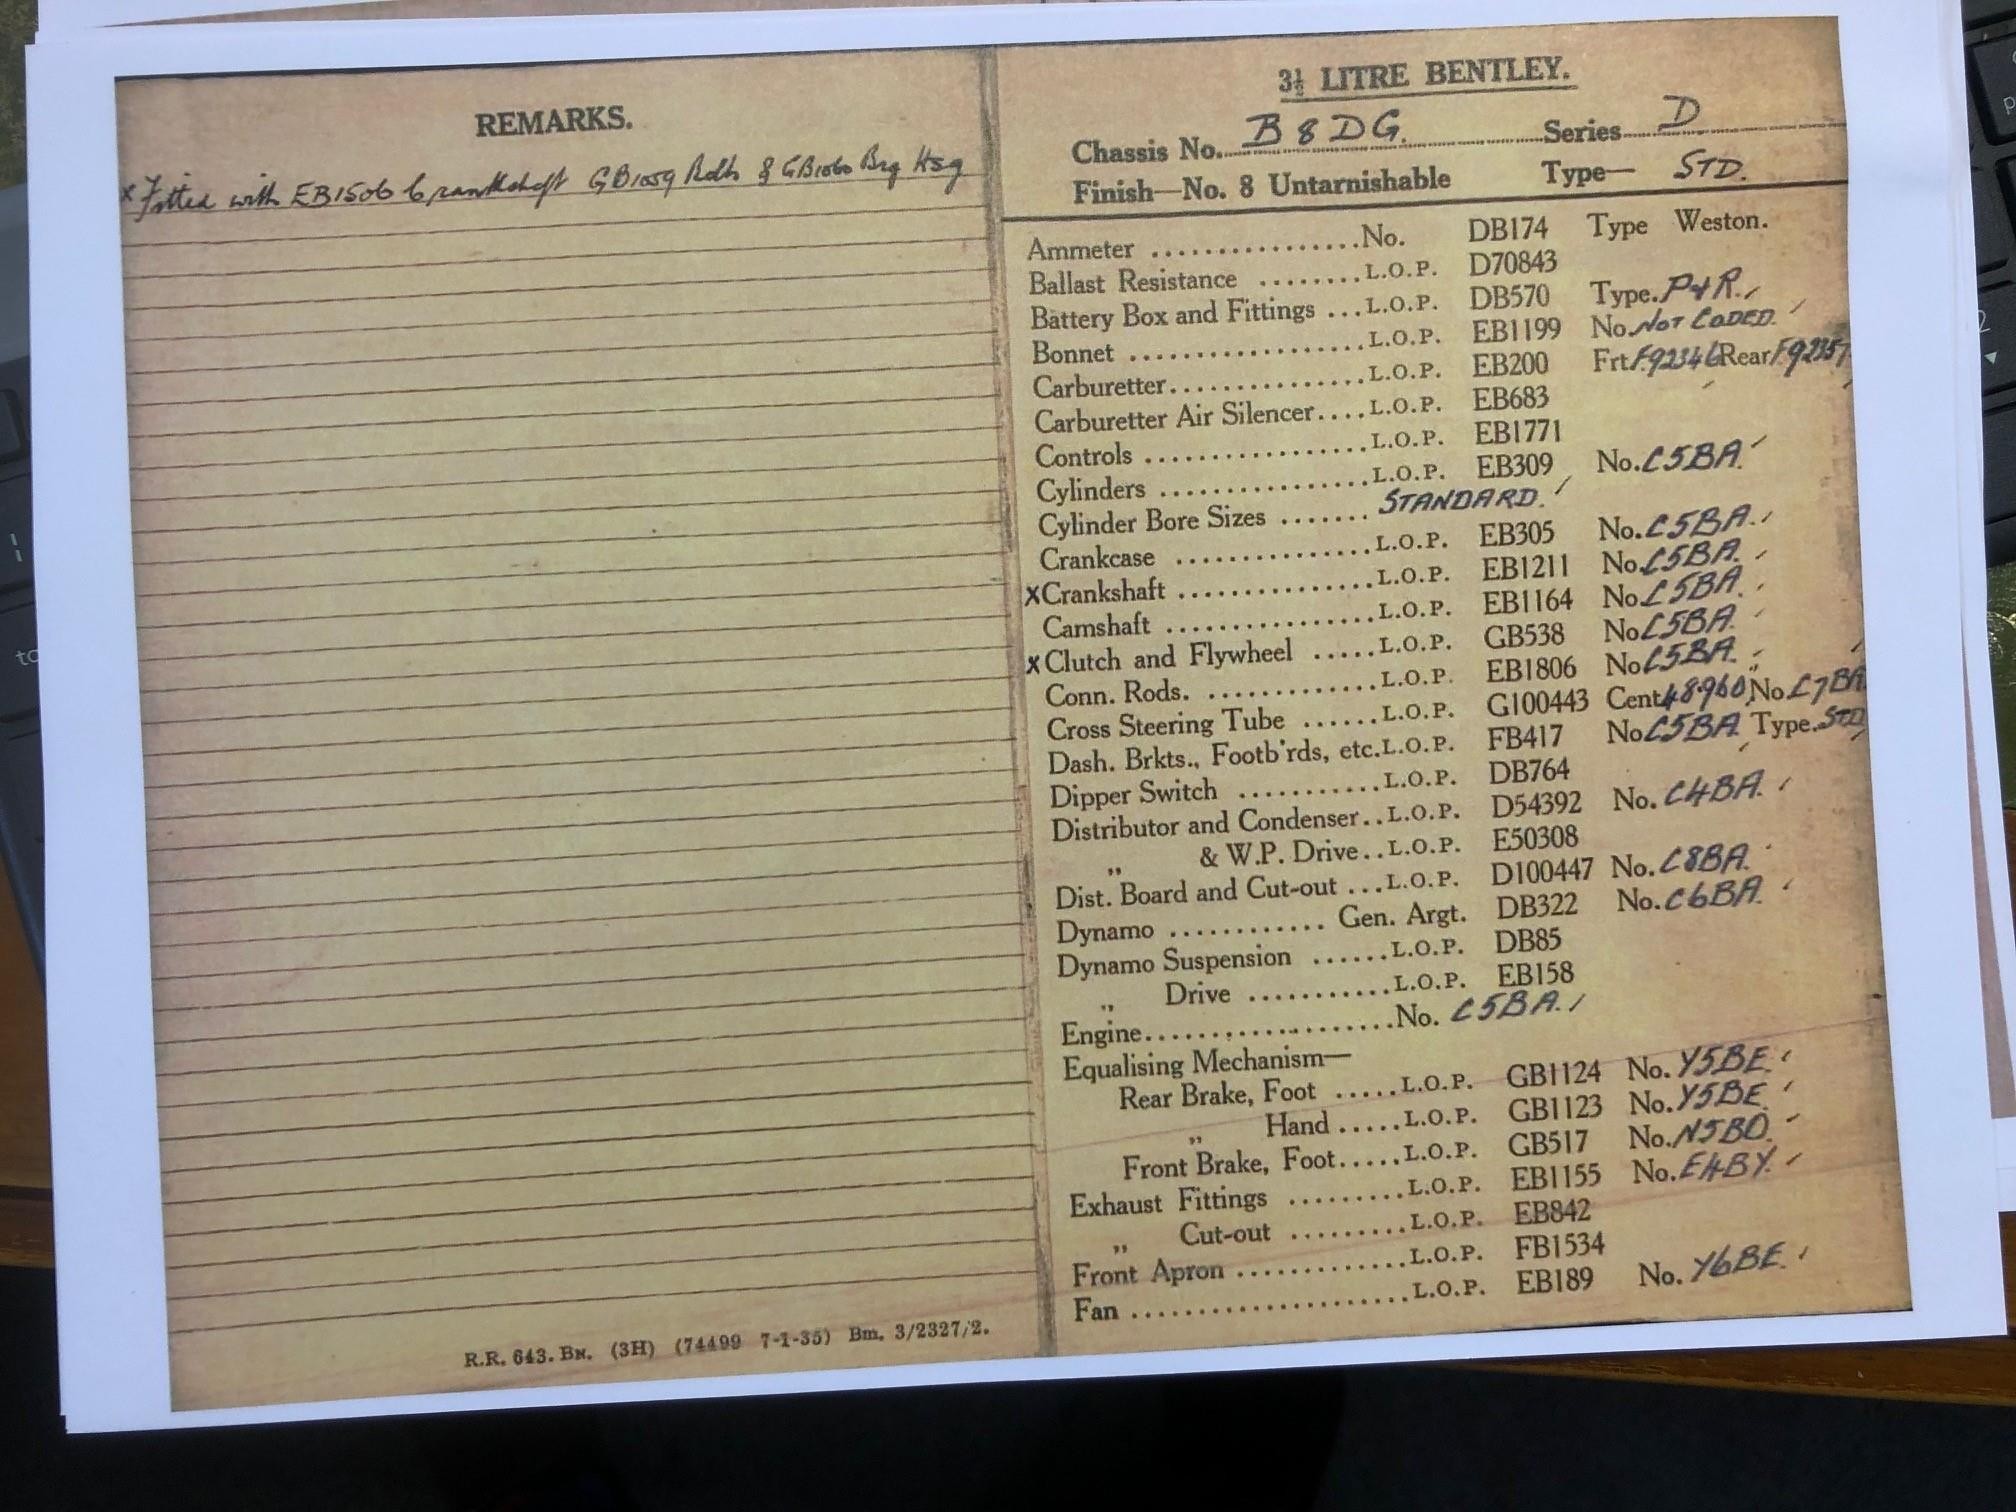 REMARKS.
x Fitted with EB1506 Crankshaft GB1059 & GB1060 Brg Hsg
R.R. 643. BN. (3H) (74499 7-1-35) Bm. 3/2327/2.
3½ LITRE BENTLEY.
Chassis No. B8DG. Series D
Finish—No. 8 Untarnishable Type— STD.
Ammeter ................No. DB174 Type Weston.
Ballast Resistance ........L.O.P. D70843
Battery Box and Fittings ...L.O.P. DB570 Type. P4R.
Bonnet ..................L.O.P. EB1199 No. NOT CODED.
Carburetter...............L.O.P. EB200 Frt F92346 Rear F92357
Carburetter Air Silencer....L.O.P. EB683
Controls .................L.O.P. EB1771
Cylinders ................L.O.P. EB309 No. C5BA.
Cylinder Bore Sizes ....... STANDARD.
Crankcase ...............L.O.P. EB305 No. C5BA.
XCrankshaft ...............L.O.P. EB1211 No. C5BA.
Camshaft ................L.O.P. EB1164 No C5BA.
XClutch and Flywheel .....L.O.P. GB538 No C5BA.
Conn. Rods. .............L.O.P. EB1806 No C5BA.
Cross Steering Tube ......L.O.P. G100443 Cent 48.960" No. C7BA
Dash. Brkts., Footb'rds, etc.L.O.P. FB417 No C5BA Type. STD
Dipper Switch ...........L.O.P. DB764
Distributor and Condenser..L.O.P. D54392 No. C4BA.
„ & W.P. Drive..L.O.P. E50308
Dist. Board and Cut-out ...L.O.P. D100447 No. C8BA.
Dynamo ............ Gen. Argt. DB322 No. C6BA.
Dynamo Suspension ......L.O.P. DB85
„ Drive ...........L.O.P. EB158
Engine.....................No. C5BA.
Equalising Mechanism—
Rear Brake, Foot .....L.O.P. GB1124 No. Y5BE.
„ Hand .....L.O.P. GB1123 No. Y5BE.
Front Brake, Foot.....L.O.P. GB517 No. N5BO.
Exhaust Fittings .........L.O.P. EB1155 No. E4BY.
„ Cut-out .........L.O.P. EB842
Front Apron .............L.O.P. FB1534
Fan .....................L.O.P. EB189 No. Y6BE.